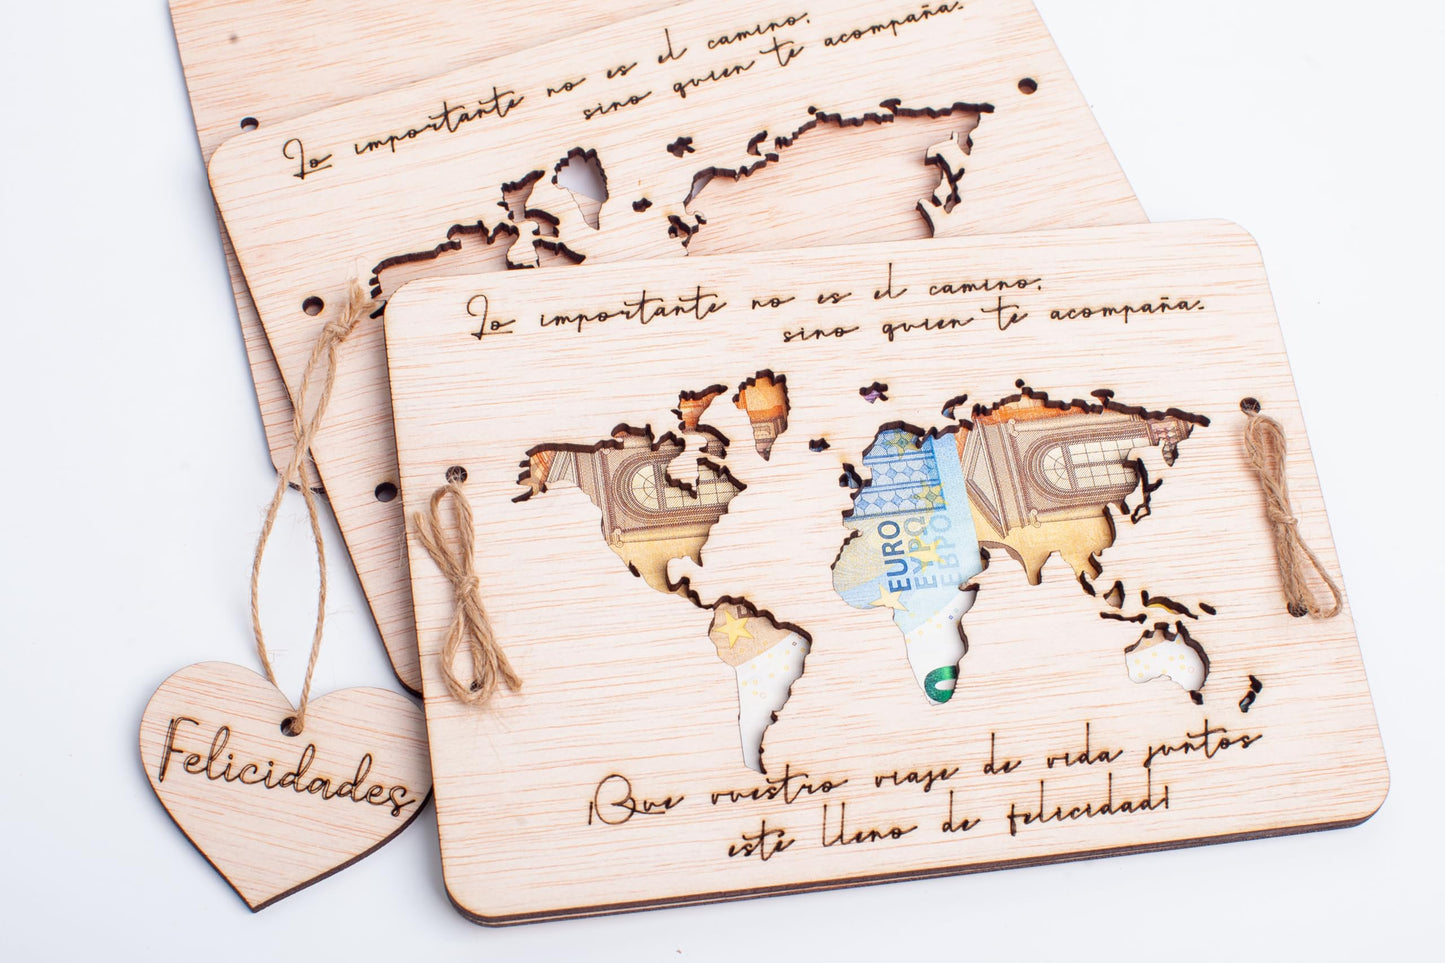 Lo importante no es el camino,
sino quien te acompaña.
Lo importante no es el camino,
sino quien te acompaña.
EURO
ΕΥΡΩ
ЕВРО
0
¡Que vuestro viaje de vida juntos
esté lleno de felicidad!
Felicidades